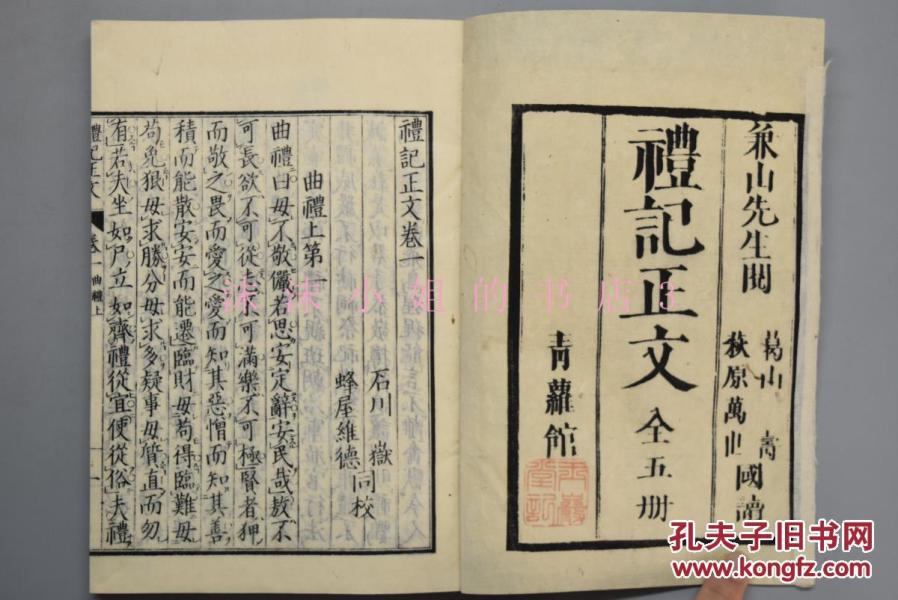 兼山先生閲
葛山 壽
萩原萬世 國讀
禮記正文 全五冊
青蘿館
禮記正文卷一
石川 嶽
蜂屋維德 同校
曲禮上第一
曲禮曰毋不敬儼若思安定辭安民哉敖不
可長欲不可從志不可滿樂不可極賢者狎
而敬之畏而愛之愛而知其惡憎而知其善
積而能散安安而能遷臨財毋苟得臨難毋
苟免狠毋求勝分毋求多疑事毋質直而勿
有若夫坐如尸立如齊禮從宜使從俗夫禮
禮記正文 卷一 曲禮上 一
沫沫小姐的书店3
孔夫子旧书网
www.kongfz.com